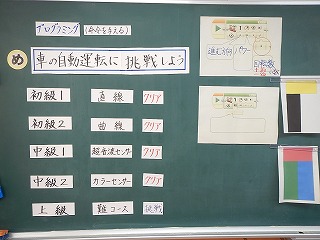 プログラミング(命令を与える)
め 車の自動運転に挑戦しよう
初級1 直線 クリア
初級2 曲線 クリア
中級1 超音波センサー クリア
中級2 カラーセンサー クリア
上級 難コース 挑戦
進む方向 パワー